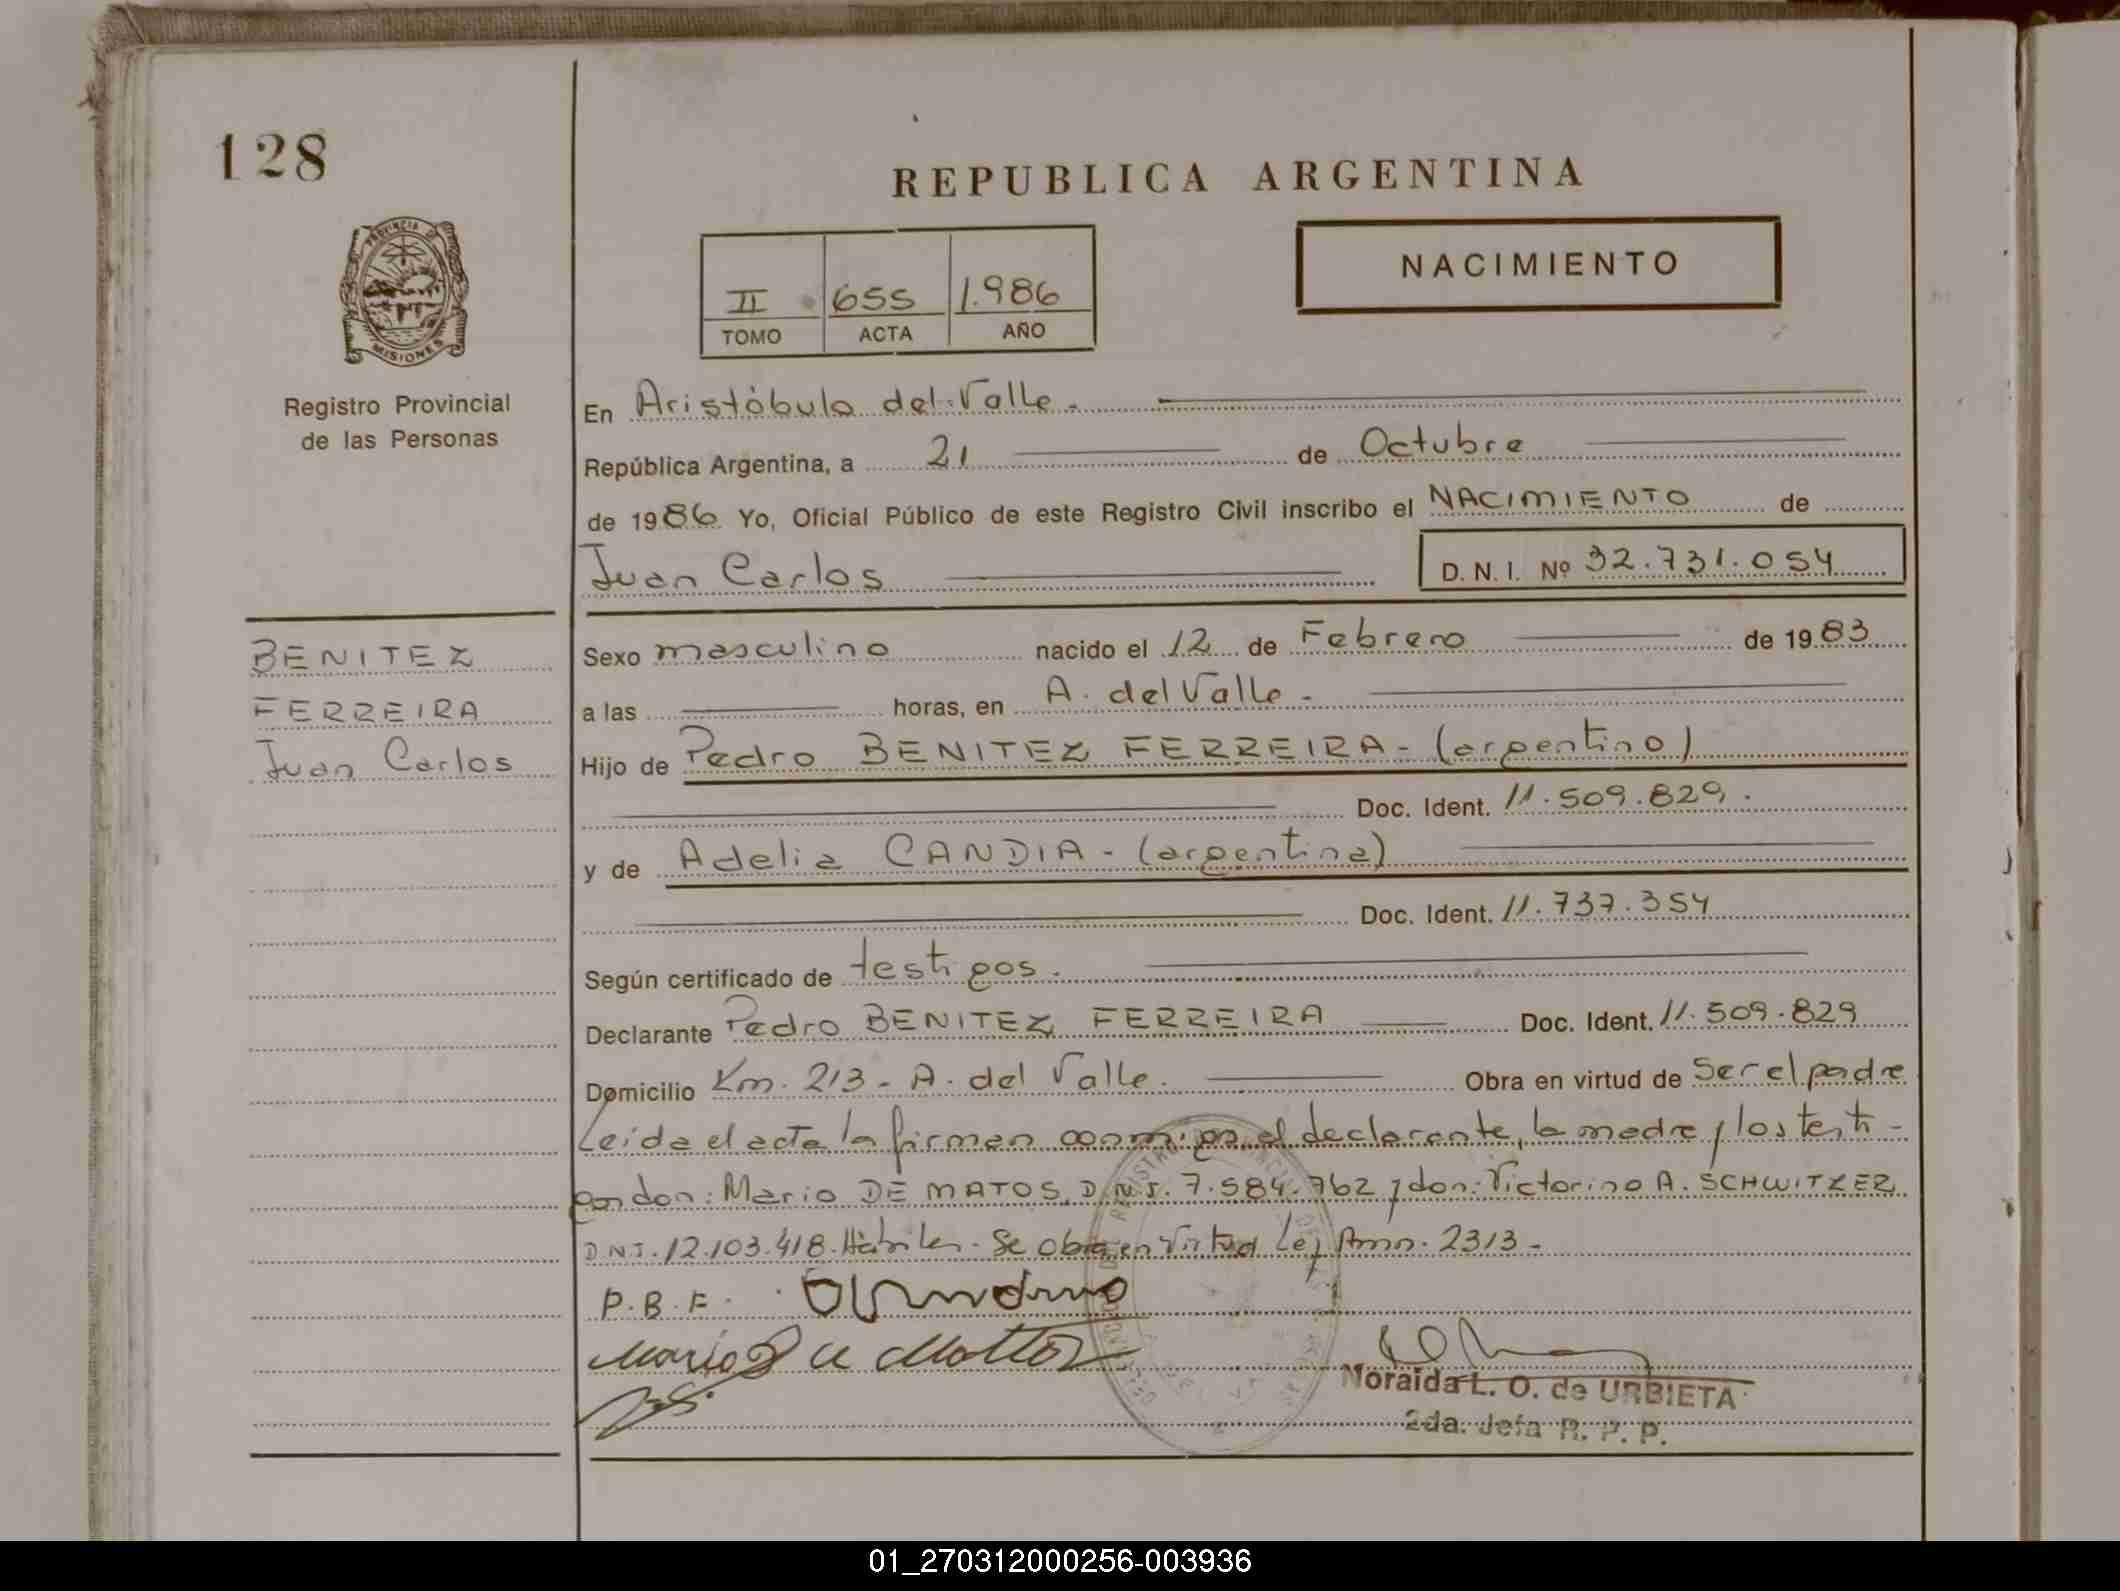 128
REPUBLICA ARGENTINA
PROVINCIA DE
MISIONES
Registro Provincial
de las Personas
II 655 1.986
TOMO ACTA AÑO
NACIMIENTO
En Aristóbulo del Valle.
República Argentina, a 21 de Octubre
de 1986 Yo, Oficial Público de este Registro Civil inscribo el NACIMIENTO de
Juan Carlos D. N. I. Nº 32.731.054
BENITEZ
FERREIRA
Juan Carlos
Sexo masculino nacido el 12 de Febrero de 1983
a las horas, en A. del Valle -
Hijo de Pedro BENITEZ FERREIRA - (argentino)
Doc. Ident. 11.509.829.
y de Adelia CANDIA - (argentina)
Doc. Ident. 11.737.354
Según certificado de testigos.
Declarante Pedro BENITEZ FERREIRA Doc. Ident. 11.509.829
Domicilio Km. 213 - A. del Valle. Obra en virtud de Ser el padre
Leida el acta la firman conmigo el declarante, la madre y los testi-
gos don: Mario DE MATOS, D.N.I. 7.584.762 y don: Victorino A. SCHWITZER
D.N.I. 12.103.418. Hábiles. Se obra en virtud Ley Amn. 2313 -
P.B.F.
Mario De Mattos
Noraida L. O. de URBIETA
2da. Jefa R. P. P.
01_270312000256-003936